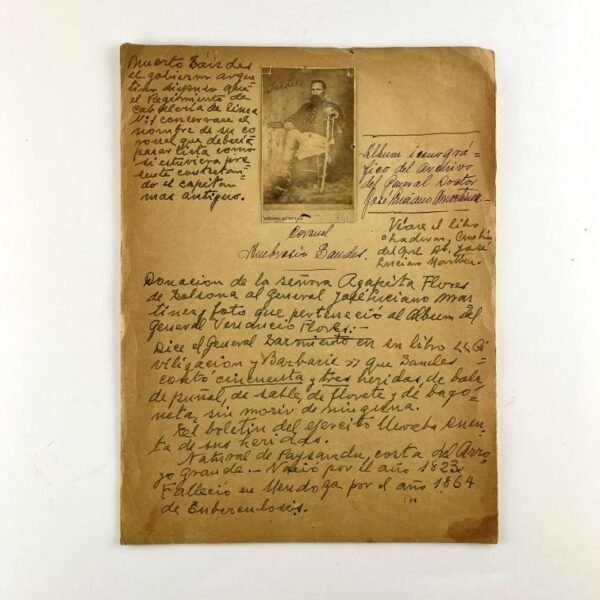 Muerto Sándes
el gobierno argen
tino dispuso que
el Regimiento de
Caballeria de linea
Nº 1 conservare el
nombre de su co
ronel que deberia
pasar lista como
si estuviera pre
sente contestan
do el capitan
mas antiguo.
Coronel
Ambrosio Sandes.
Album iconográ=
fico del Archivo
del General Doctor
José Luciano Martinez
Véase el libro
del Gral Dr. José
Luciano Martinez.
Donacion de la señora Agapita Flores
de Dalsona al General José Luciano Mar
tinez, foto que perteneció al Album del
General Venancio Flores:-
Dice el General Sarmiento en su libro "Ci
viligacion y Barbarie" que Sandes
contó cincuenta y tres heridas, de bala
de puñal, de sable, de florete y de bayo=
neta, sin morir de ninguna.
El boletin del ejercito llevaba cuen
ta de sus heridas.
Natural de Paysandu, costa del Arro
yo Grande.- Nació por el año 1823
Falleció en Mendoza por el año 1864
de Tuberculosis.